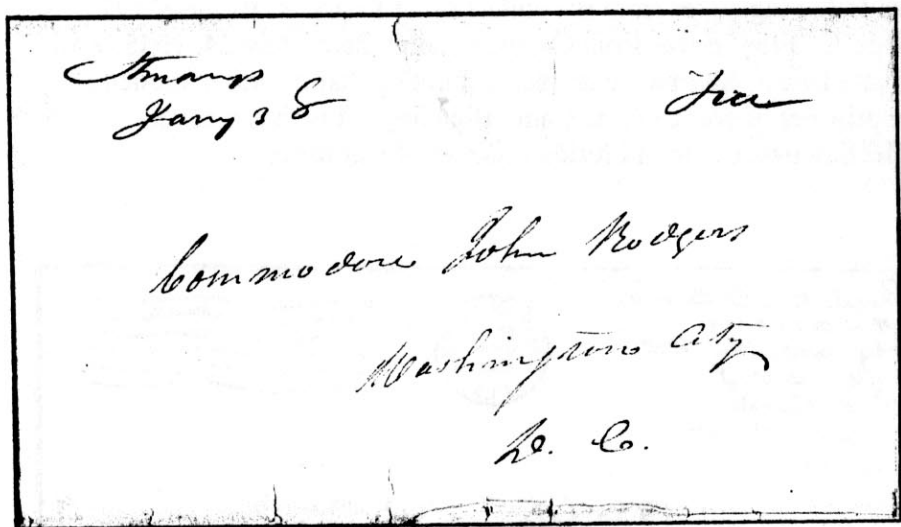 Jany 3 8
Free
Commodore John Rodgers
Washington City
D. C.